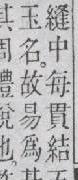 縫中每貫結
玉名故易爲其
其周禮說也